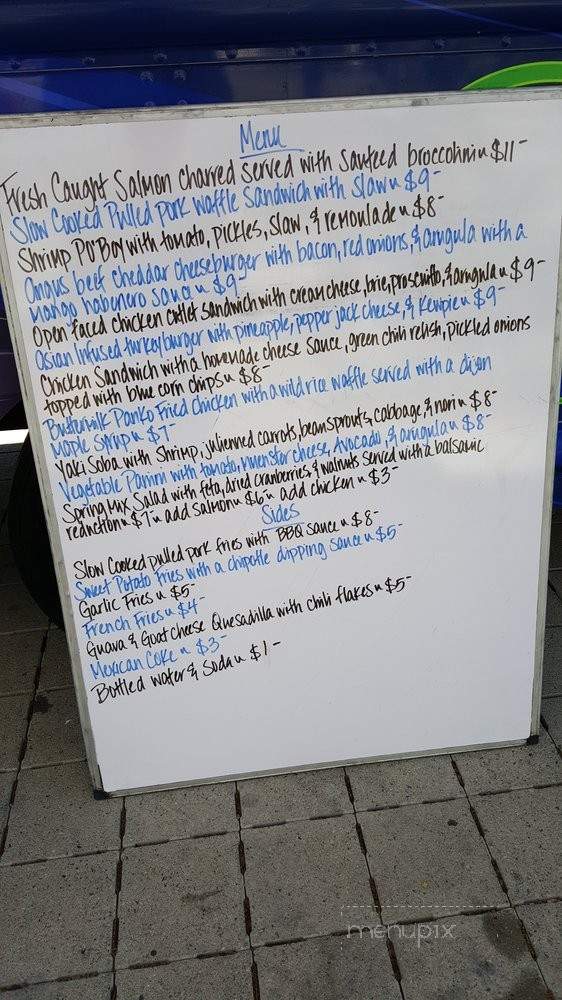 Menu
Fresh Caught Salmon charred served with sauteed broccolini ~ $11-
Slow Cooked Pulled Pork Waffle Sandwich with slaw ~ $9-
Shrimp Po'Boy with tomato, pickles, slaw, & remoulade ~ $8-
Angus beef cheddar cheeseburger with bacon, red onions, & arugula with a
mango habenero sauce ~ $9-
Open faced chicken cutlet sandwich with cream cheese, brie, prosciutto, & arugula ~ $9-
Asian Infused turkey burger with pineapple, pepper jack cheese, & Kewpie ~ $9-
Chicken Sandwich with a homemade cheese sauce, green chili relish, pickled onions
topped with blue corn chips ~ $8-
Buttermilk Panko Fried Chicken with a wild rice waffle served with a dijon
maple syrup ~ $7-
Yaki Soba with Shrimp, julienned carrots, bean sprouts, cabbage, & nori ~ $8-
Vegetable Panini with tomato, muenster cheese, Avocado, & arugula ~ $8-
Spring Mix Salad with feta, dried cranberries, & walnuts served with a balsamic
reduction ~ $7 ~ add salmon ~ $6 ~ add chicken ~ $3-
Sides
Slow Cooked pulled pork fries with BBQ sauce ~ $8-
Sweet Potato Fries with a chipotle dipping sauce ~ $5-
Garlic Fries ~ $5-
French Fries ~ $4-
Guava & Goat cheese Quesadilla with chili flakes ~ $5-
Mexican Coke ~ $3-
Bottled water & Soda ~ $1-
menupix